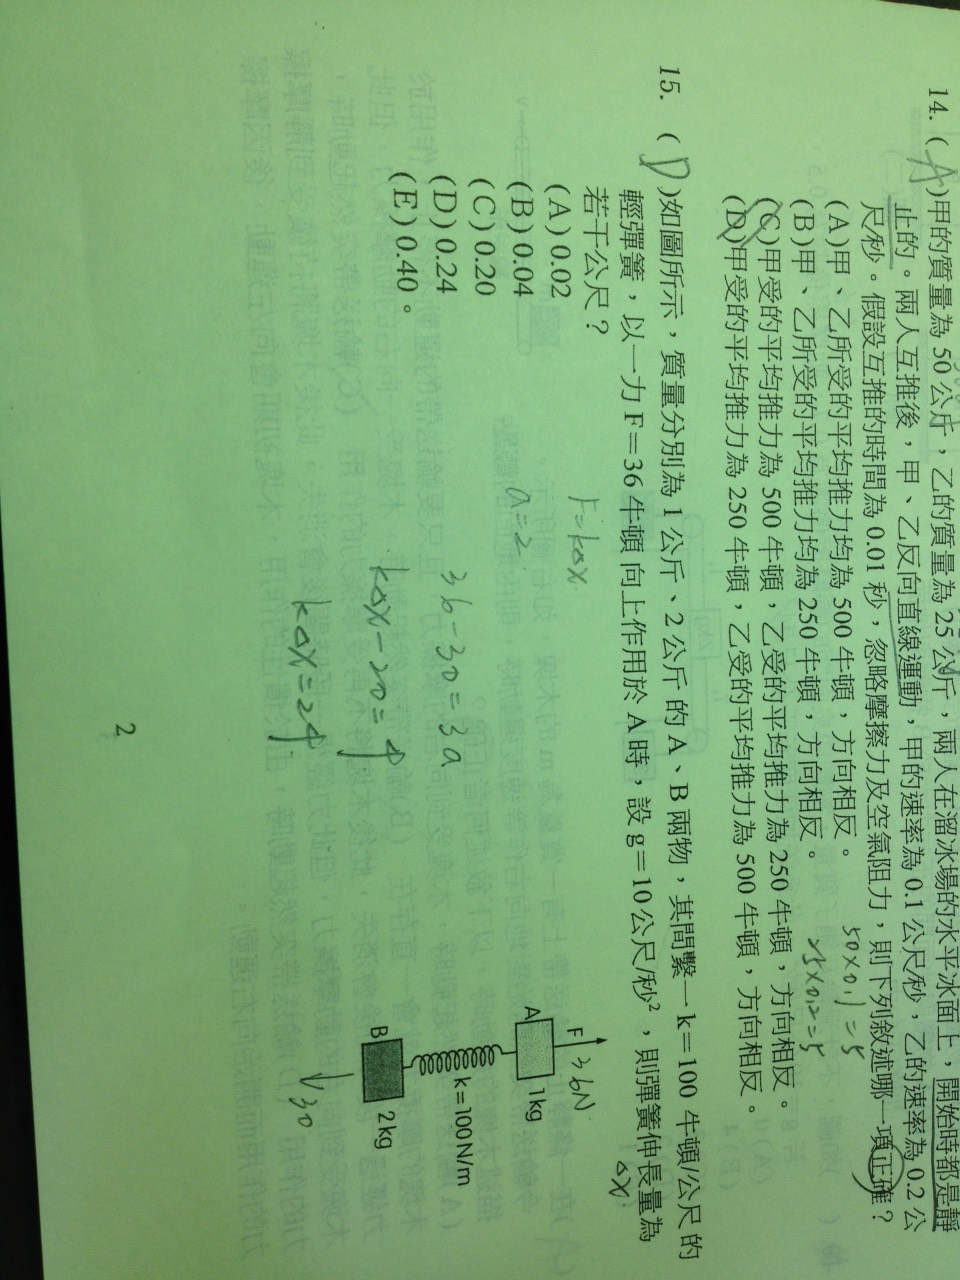 14. (A)甲的質量為 50 公斤，乙的質量為 25 公斤，兩人在溜冰場的水平冰面上，開始時都是靜
止的。兩人互推後，甲、乙反向直線運動，甲的速率為 0.1 公尺/秒，乙的速率為 0.2 公
尺/秒。假設互推的時間為 0.01 秒，忽略摩擦力及空氣阻力，則下列敘述哪一項正確？
(A)甲、乙所受的平均推力均為 500 牛頓，方向相反。
50×0.1=5
(B)甲、乙所受的平均推力均為 250 牛頓，方向相反。
25×0.2=5
(C)甲受的平均推力為 500 牛頓，乙受的平均推力為 250 牛頓，方向相反。
(D)甲受的平均推力為 250 牛頓，乙受的平均推力為 500 牛頓，方向相反。
15. (D)如圖所示，質量分別為 1 公斤、2 公斤的 A、B 兩物，其間繫一 k＝100 牛頓/公尺的
輕彈簧，以一力 F＝36 牛頓 向上作用於 A 時，設 g＝10 公尺/秒²，則彈簧伸長量為
Δx
若干公尺？
(A) 0.02
(B) 0.04
(C) 0.20
(D) 0.24
(E) 0.40。
F=kΔx
a=2
36-30=3a
kΔx-20=4
kΔx=24
F
36N
A
1kg
k=100N/m
B
2kg
30
2